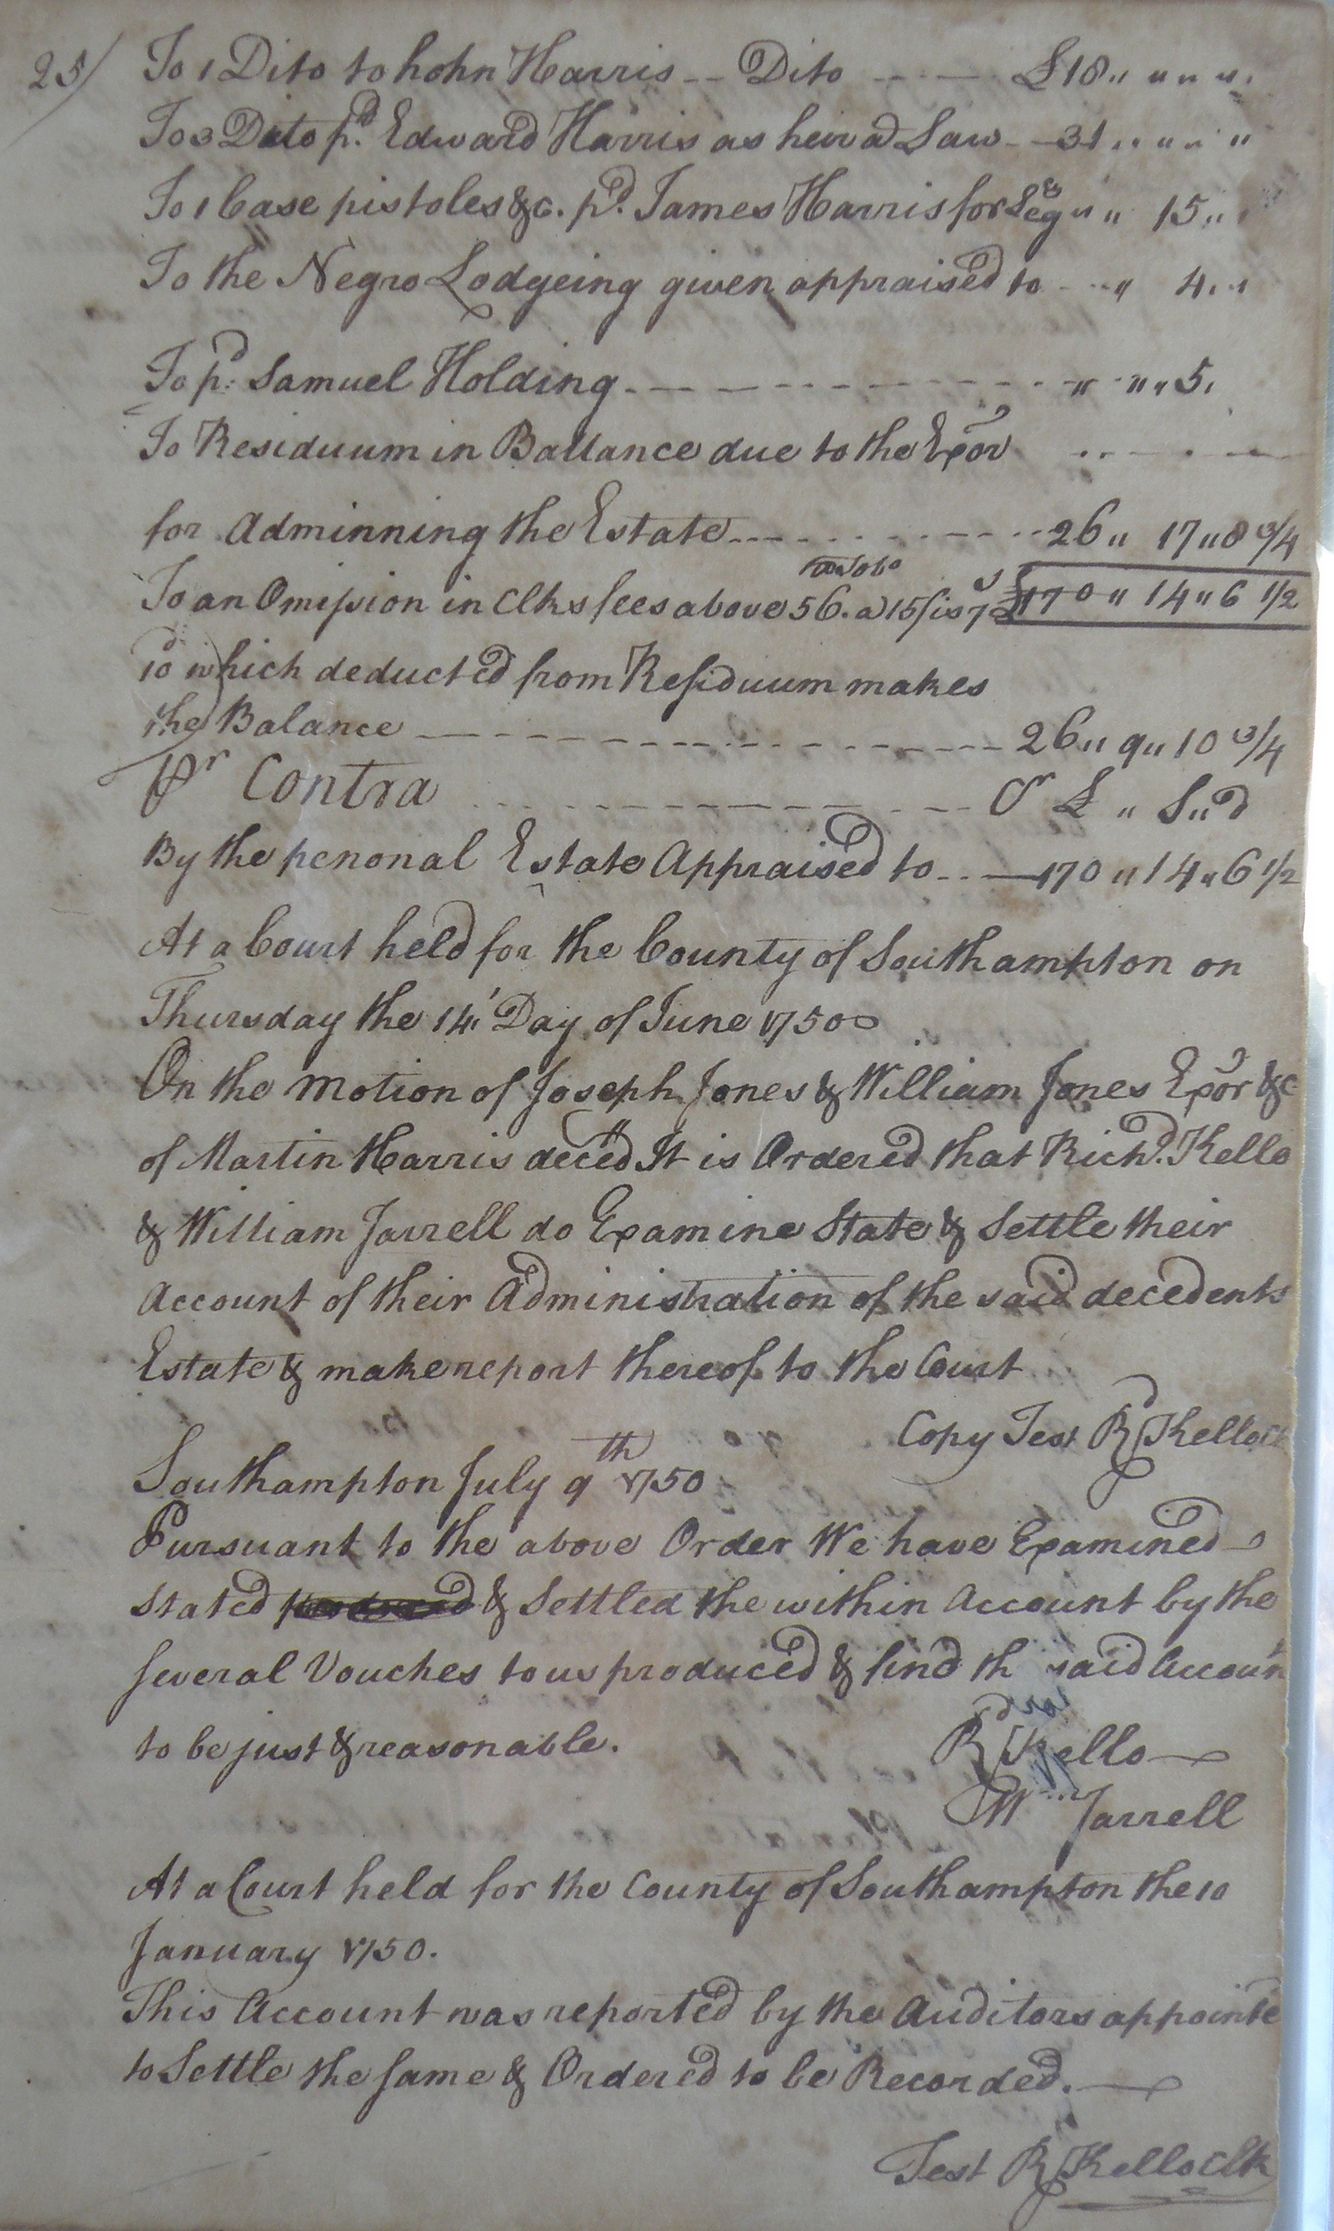 25/
To 1 Dito to hohn Harris -- Dito ---- £18 " " " "
To 3 Dito pd. Edward Harris as heir a Law -- 31 " " " "
To 1 Case pistoles &c. pd. James Harris for Leg " " 15 " "
To the Negro Lodgeing given appraised to --- " 4 " "
To pd. Samuel Holding ------------ " " " 5.
To Residuum in Ballance due to the Exor ----
for Adminning the Estate --------- 26 " 17 " 8 3/4
a Tobo
To an Omission in Clks fees above 56. a 15/ is 7/ £170 " 14 " 6 1/2
10d which deducted from Residuum makes
the Balance ------------ 26 " 9 " 10 3/4
Pr Contra ------------ Cr £ " S " d
By the penonal Estate Appraised to --- 170 " 14 " 6 1/2
At a Court held for the County of Southampton on
Thursday the 14' Day of June 1750
On the Motion of Joseph Jones & William Jones Exor &c
of Martin Harris deced It is Ordered that Richd. Kello
& William Jarrell do Examine State & Settle their
Account of their Administration of the said decedents
Estate & make report thereof to the Court
Copy Test Rd Kello Ct
Southampton July 9th 1750
Pursuant to the above Order We have Examined
stated & Settled the within Account by the
several Vouches to us produced & find th said Accoun
to be just & reasonable.
Rd Kello
Wm Jarrell
At a Court held for the County of Southampton the 10
January 1750.
This Account was reported by the Auditors appointe
to Settle the same & Ordered to be Recorded.
Test R Kello Clk